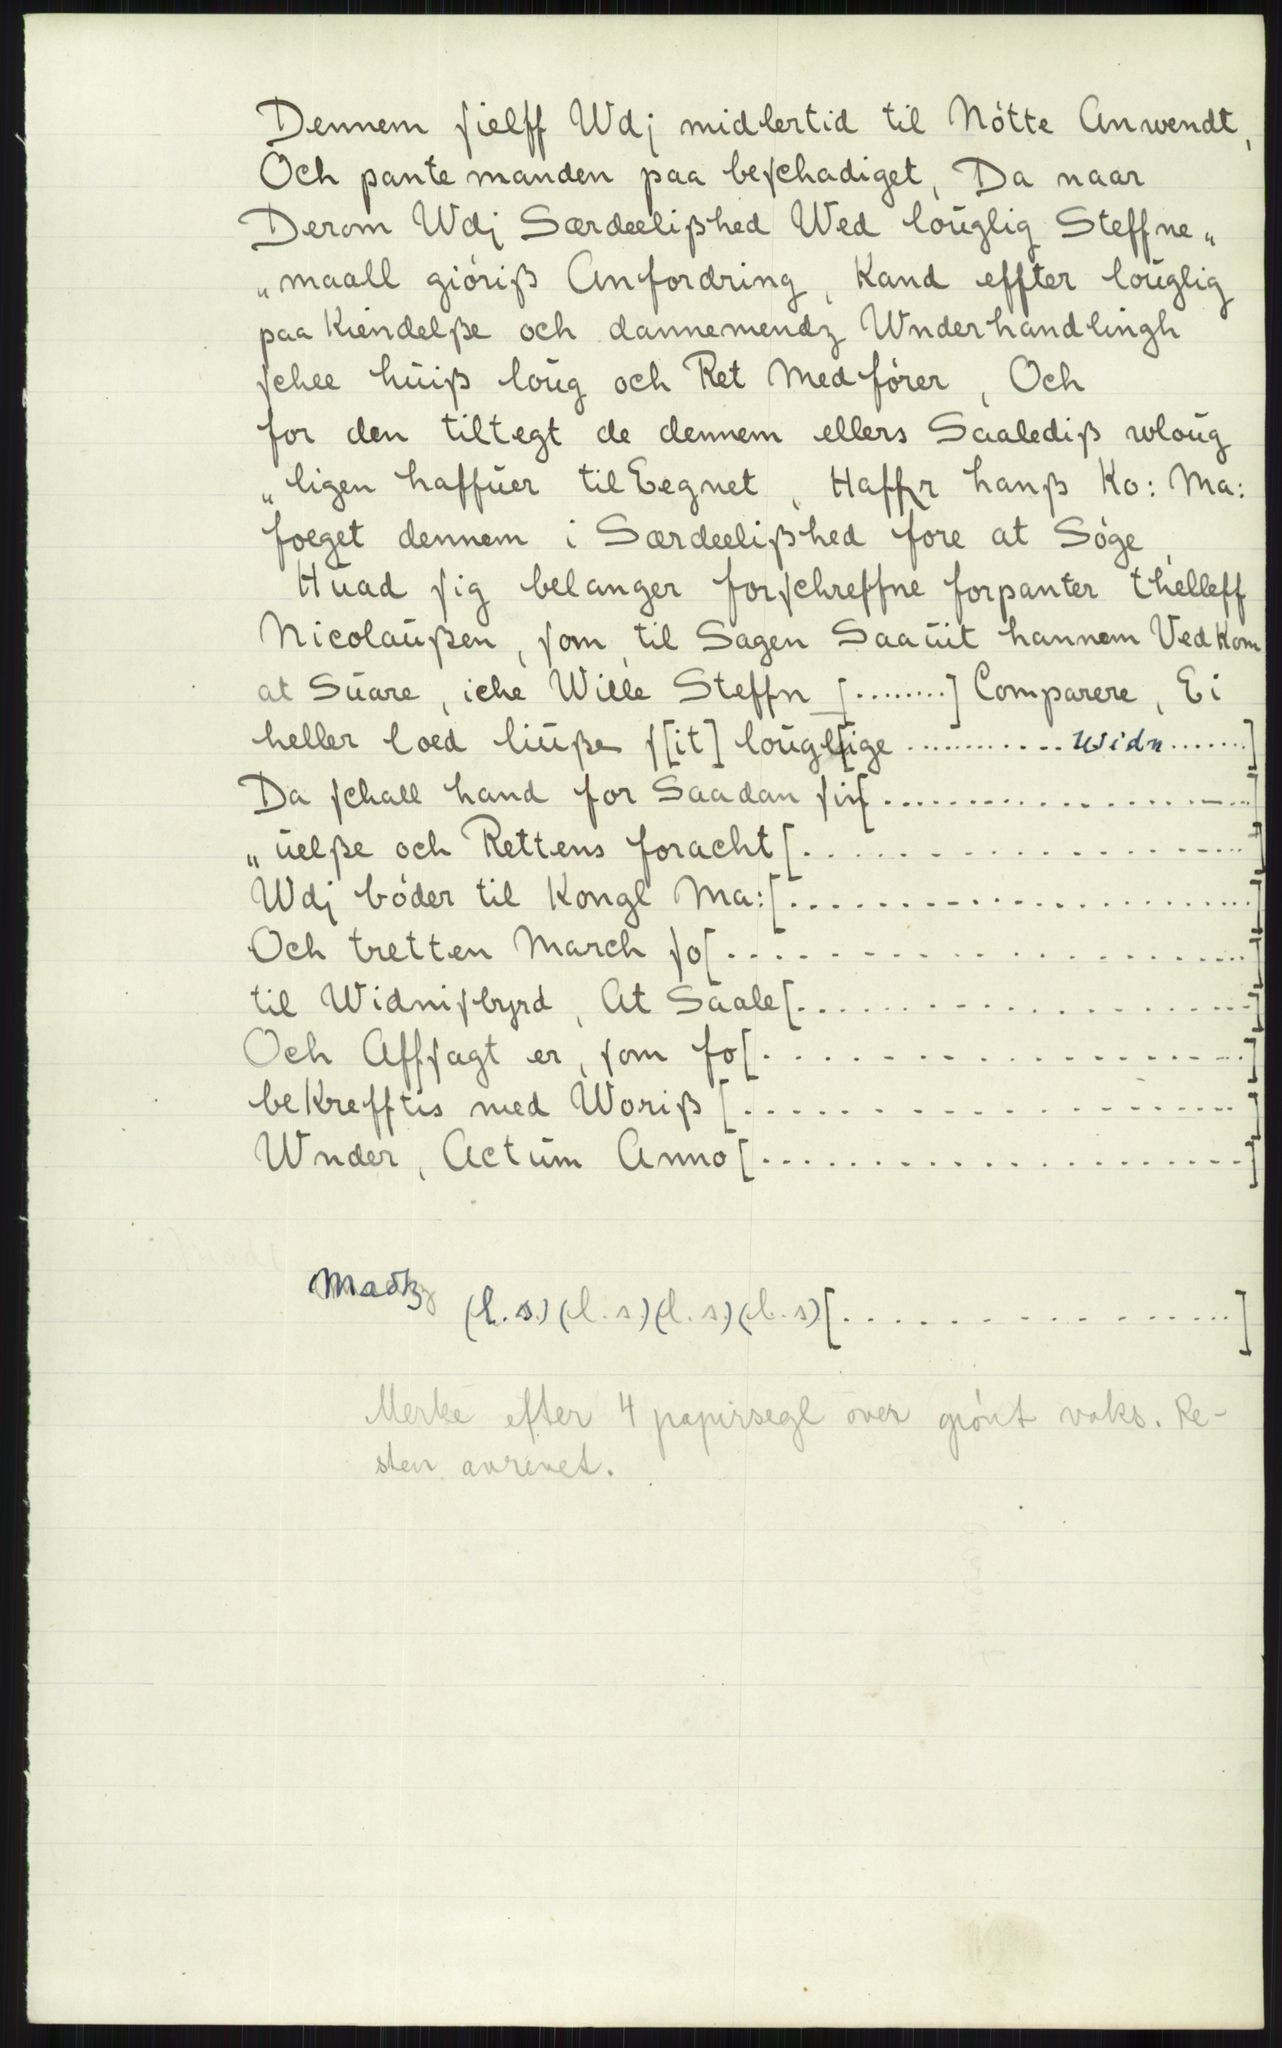 Dennem ſielff Wdj midlertid til Nötte Anwendt,
Och pante manden paa beſchadiget, Da naar
Derom Wdj Særdeelißhed Wed loŭglig Steffne„
„maall giöriß Anfordring, Kand effter loŭglig
paa Kiendelße och dannemendz Wnderhandlingh
ſchee hŭiß loŭg och Ret Medförer, Och
for den tiltegt de dennem ellers Saalediß wloŭg
„ligen haffŭer til Eegnet, Haffr hanß Ko: Ma:
foeget dennem i Særdeelißhed fore at Söge,
Hŭad ſig belanger forſchreffne forpanter thelleff
Nicolaŭßen, ſom til Sagen Saaŭit hannem VedKom
at Sŭare, iche Wille Steffn [........] Comparere, Ei
heller loed liŭße ſ[it] loŭgl[ige ........... Widn .......]
Da ſchall hand for Saadan ſin[....................]
„ŭelße och Rettens foracht[....................]
Wdj böder til Kongl Ma:[....................]
Och tretten March ſo[....................]
til Widniſbyrd, At Saale[....................]
Och Affſagt er, ſom fo[....................]
beKrefftis med Woriß [....................]
Wnder, Actŭm Anno[....................]
Madtz
(l.s.)(l.s.)(l.s.)(l.s)[....................]
Merke efter 4 papirsegl över grönt voks. Re-
sten avrevet.